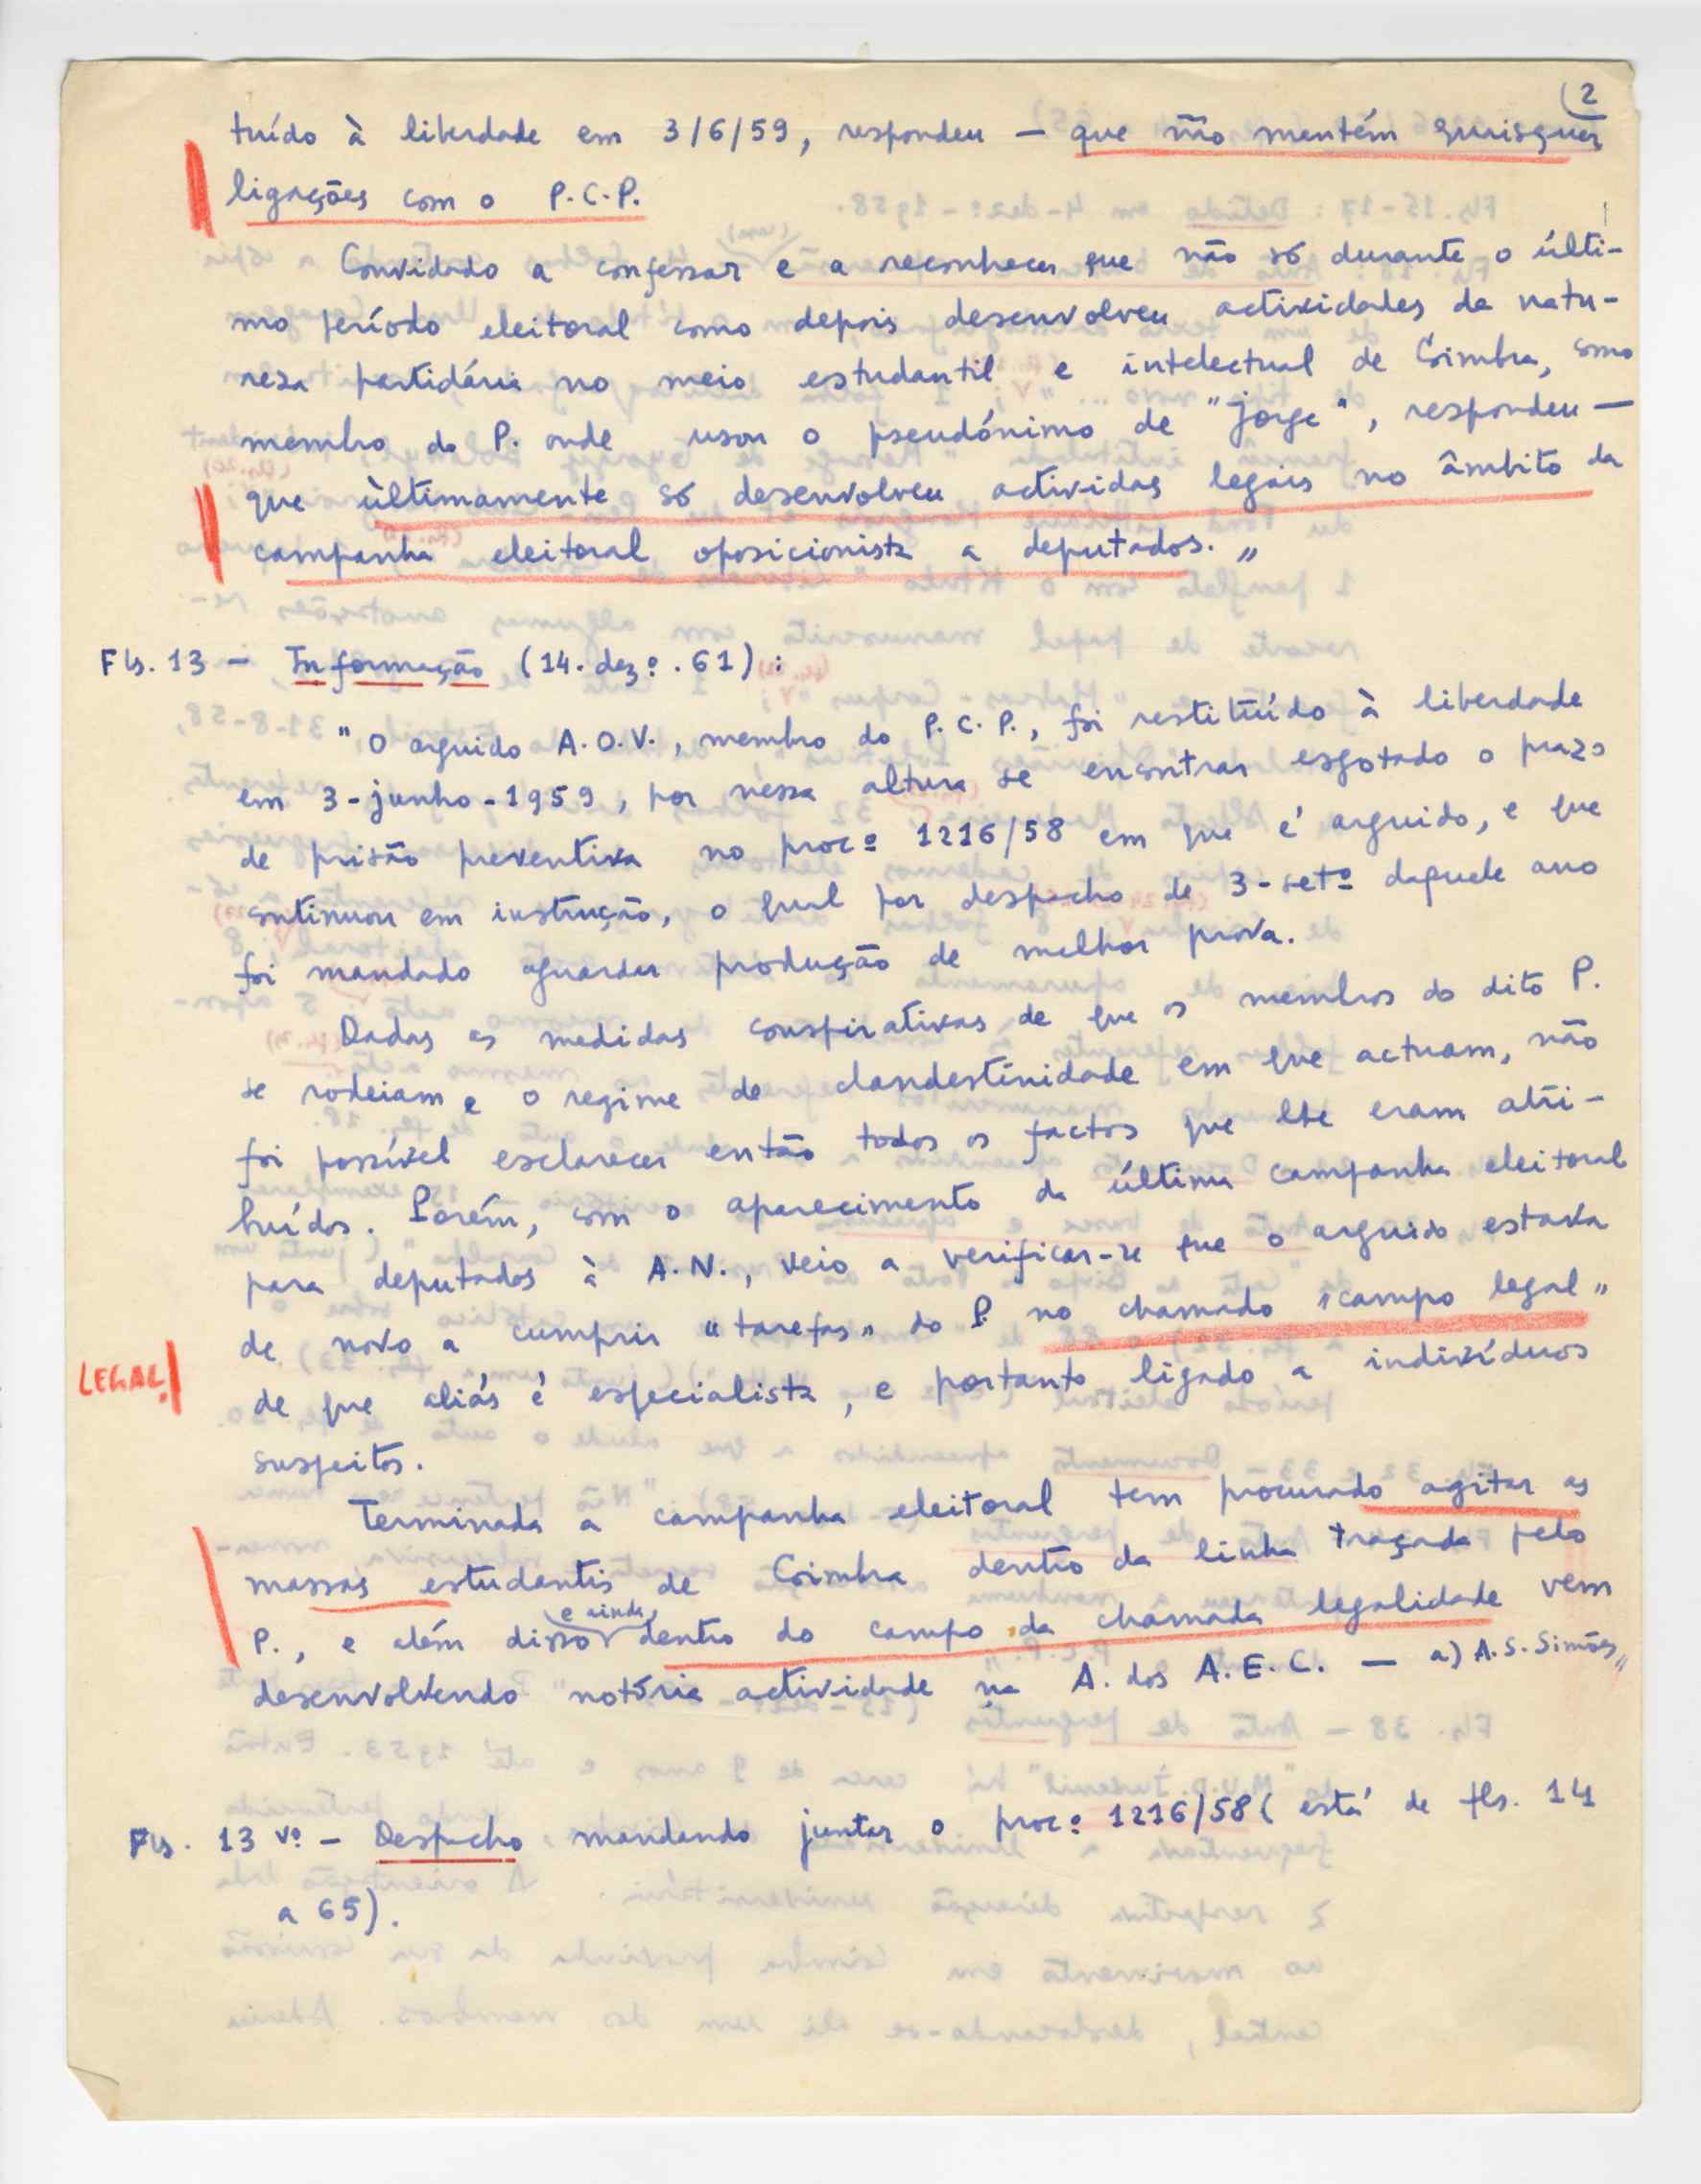 2
tuído à liberdade em 3/6/59, respondeu — que não mentém quaisquer
ligações com o P.C.P.
Convidado a confessar e a reconhecer que não só durante o últi-
mo período eleitoral como depois desenvolveu actividades de natu-
reza partidária no meio estudantil e intelectual de Coimbra, como
membro do P. onde usou o pseudónimo de "Jorge", respondeu —
que ùltimamente só desenvolveu activides legais no âmbito da
campanha eleitoral oposicionista a deputados."
Fls. 13 — Informação (14.dezº.61):
"O arguido A.O.V., membro do P.C.P., foi restituído à liberdade
em 3-junho-1959, por nessa altura se encontrar esgotado o prazo
de prisão preventiva no procº 1216/58 em que é arguido, e que
continuou em instrução, o qual por despacho de 3-setº daquele ano
foi mandado aguardar produção de melhor prova.
Dadas as medidas conspirativas de que os membros do dito P.
se rodeiam e o regime de clandestinidade em que actuam, não
foi possível esclarecer então todos os factos que lhe eram atri-
buídos. Porém, com o aparecimento da última campanha eleitoral
para deputados à A.N., veio a verificar-se que o arguido estava
de novo a cumprir "tarefas" do P. no chamado "campo legal"
LEGAL!
de que aliás é especialista, e portanto ligado a indivíduos
suspeitos.
Terminada a campanha eleitoral tem procurado agitar as
massas estudantis de Coimbra dentro da linha traçada pelo
P., e além disso e ainda dentro do campo da chamada legalidade vem
desenvolvendo notória actividade na A. dos A.E.C. — a) A.S. Simões"
Fls. 13 vº — Despacho mandando juntar o procº 1216/58 (está de fls. 14
a 65).